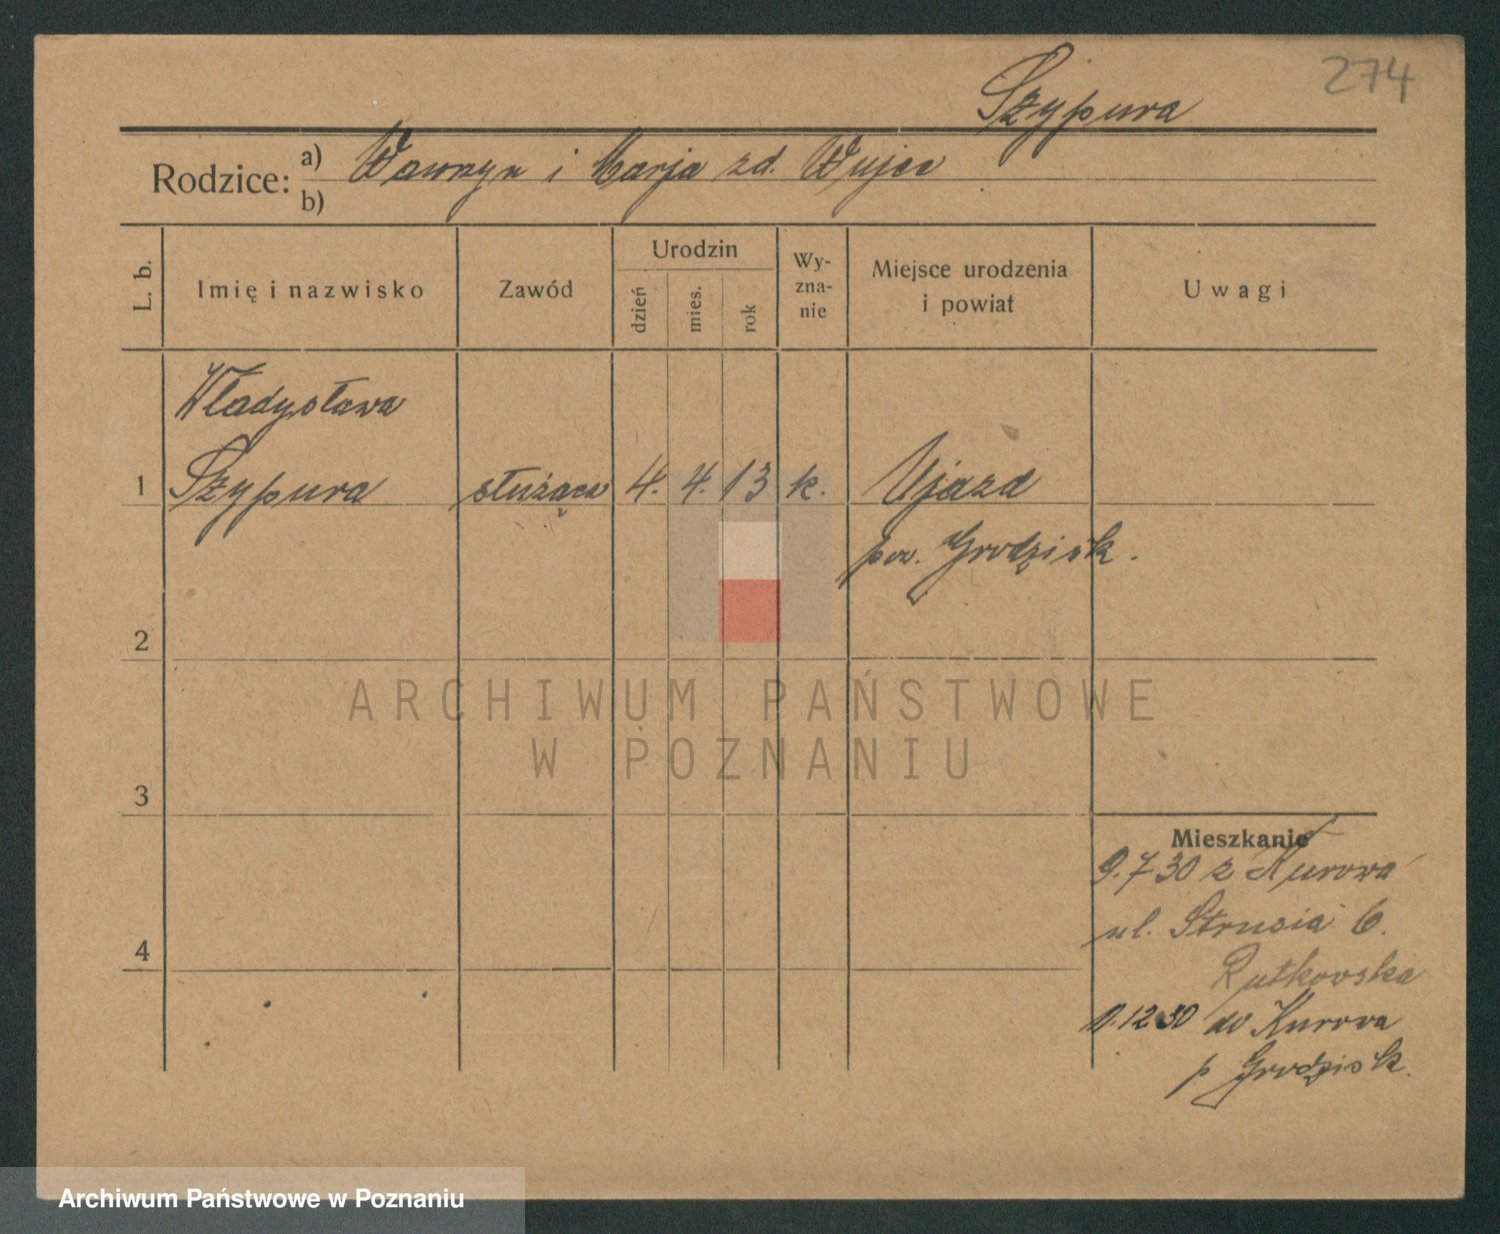 274
Szypura
Rodzice: a) Wawrzyn i Marja zd. Wujec
b)
L. b.
Imię i nazwisko
Zawód
Urodzin
dzień
mies.
rok
Wy-
zna-
nie
Miejsce urodzenia
i powiat
Uwagi
Władysława
1 Szypura służąca 4. 4. 13 k. Ujazd
pow. Grodzisk.
2
3
4
Mieszkanie
9.7 30 z Kurowa
ul. Strusia 6.
Rutkowska
1.12 30 do Kurowa
p Grodzisk.
ARCHIWUM PAŃSTWOWE
W POZNANIU
Archiwum Państwowe w Poznaniu